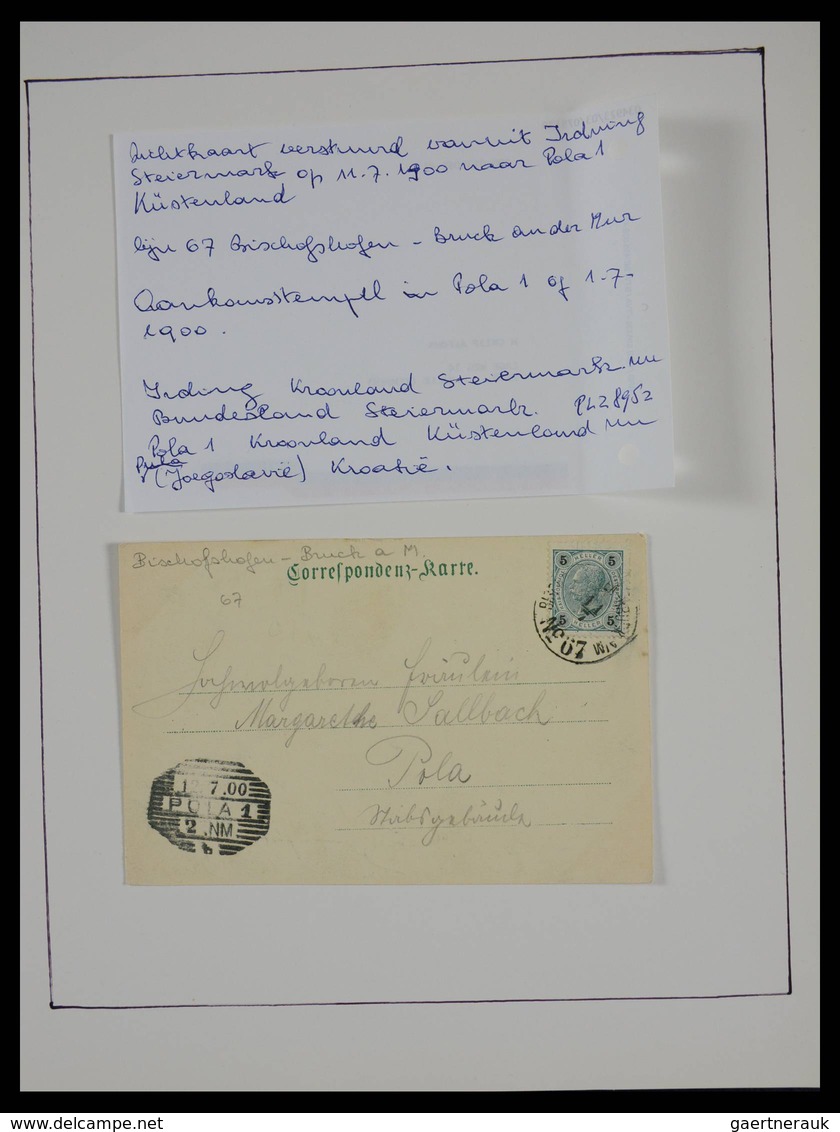 Zichtkaart verstuurd vanuit Irdning
Steiermark op 11.7.1900 naar Pola 1
Küstenland
lijn 67 Bischofshofen - Bruck an der Mur
Aankomststempel in Pola 1 of 1-7-
1900.
Irding Kroonland Steiermark nu
Bundesland Steiermark. PL28952
Pola 1 Kroonland Küstenland nu
Pula
(Joegoslavië) Kroatië.
Bischofshofen - Bruck a M.
Correspondenz-Karte.
67
5 HELLER 5
5 HELLER 5
11
No 67
Hochwolgeboren Fräulein
Margarethe Sallbach
Pola
Stabsgebäude
12.7.00
POLA 1
2.NM
b
www.delcampe.net
gaertnerauk